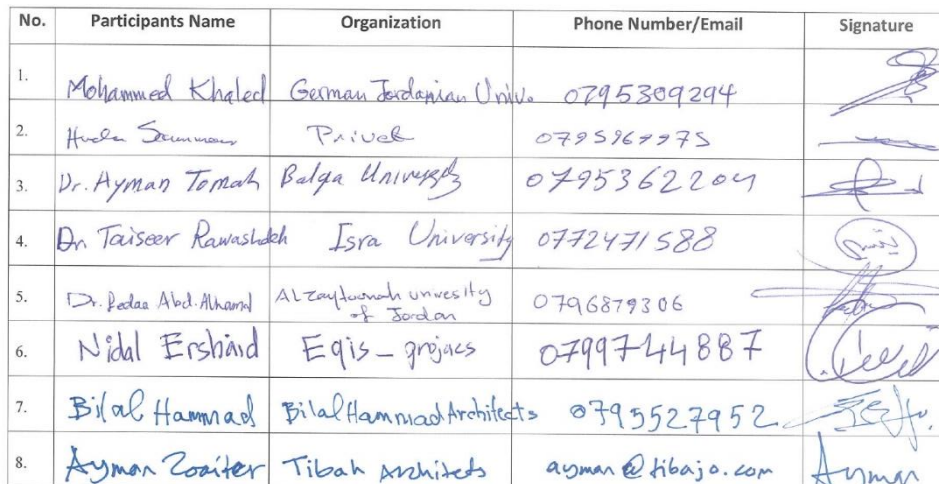 No. Participants Name Organization Phone Number/Email Signature
1. Mohammed Khaled German Jordanian Univ. 0795309294
2. Huda Privet 0795969975
3. Dr. Ayman Tomah Balqa University 0795362204
4. Dr. Taiseer Rawashdeh Isra University 0772471588
5. Dr. Redaa Abd.Alhamid ALzaytoonah unvresity of Jordan 0796879306
6. Nidal Ershaid Egis - 0799744887
7. Bilal Hammad Bilal Hammad Architects 0795527952
8. Ayman Zoaiter Tibah Architets ayman@tibajo.com Ayman